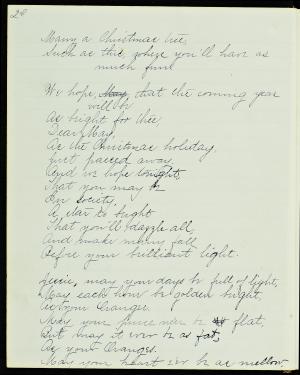 28
Many a Christmas tree,
Such as this, where you'll have as
much fun.
We hope, May, that the coming year
will be
As bright for thee
Dear May,
As the Christmas holiday,
Just passed away.
And we hope
That you may be
In society,
A star so bright
That you'll dazzle all,
And make many fall
Before your brilliant light.
Jessie, may your days be full of light,
May each hour be golden bright,
As your Oranges.
May your purse ne'er be flat,
But may it ever be as fat,
As your Oranges.
May your heart e'er be as mellow,